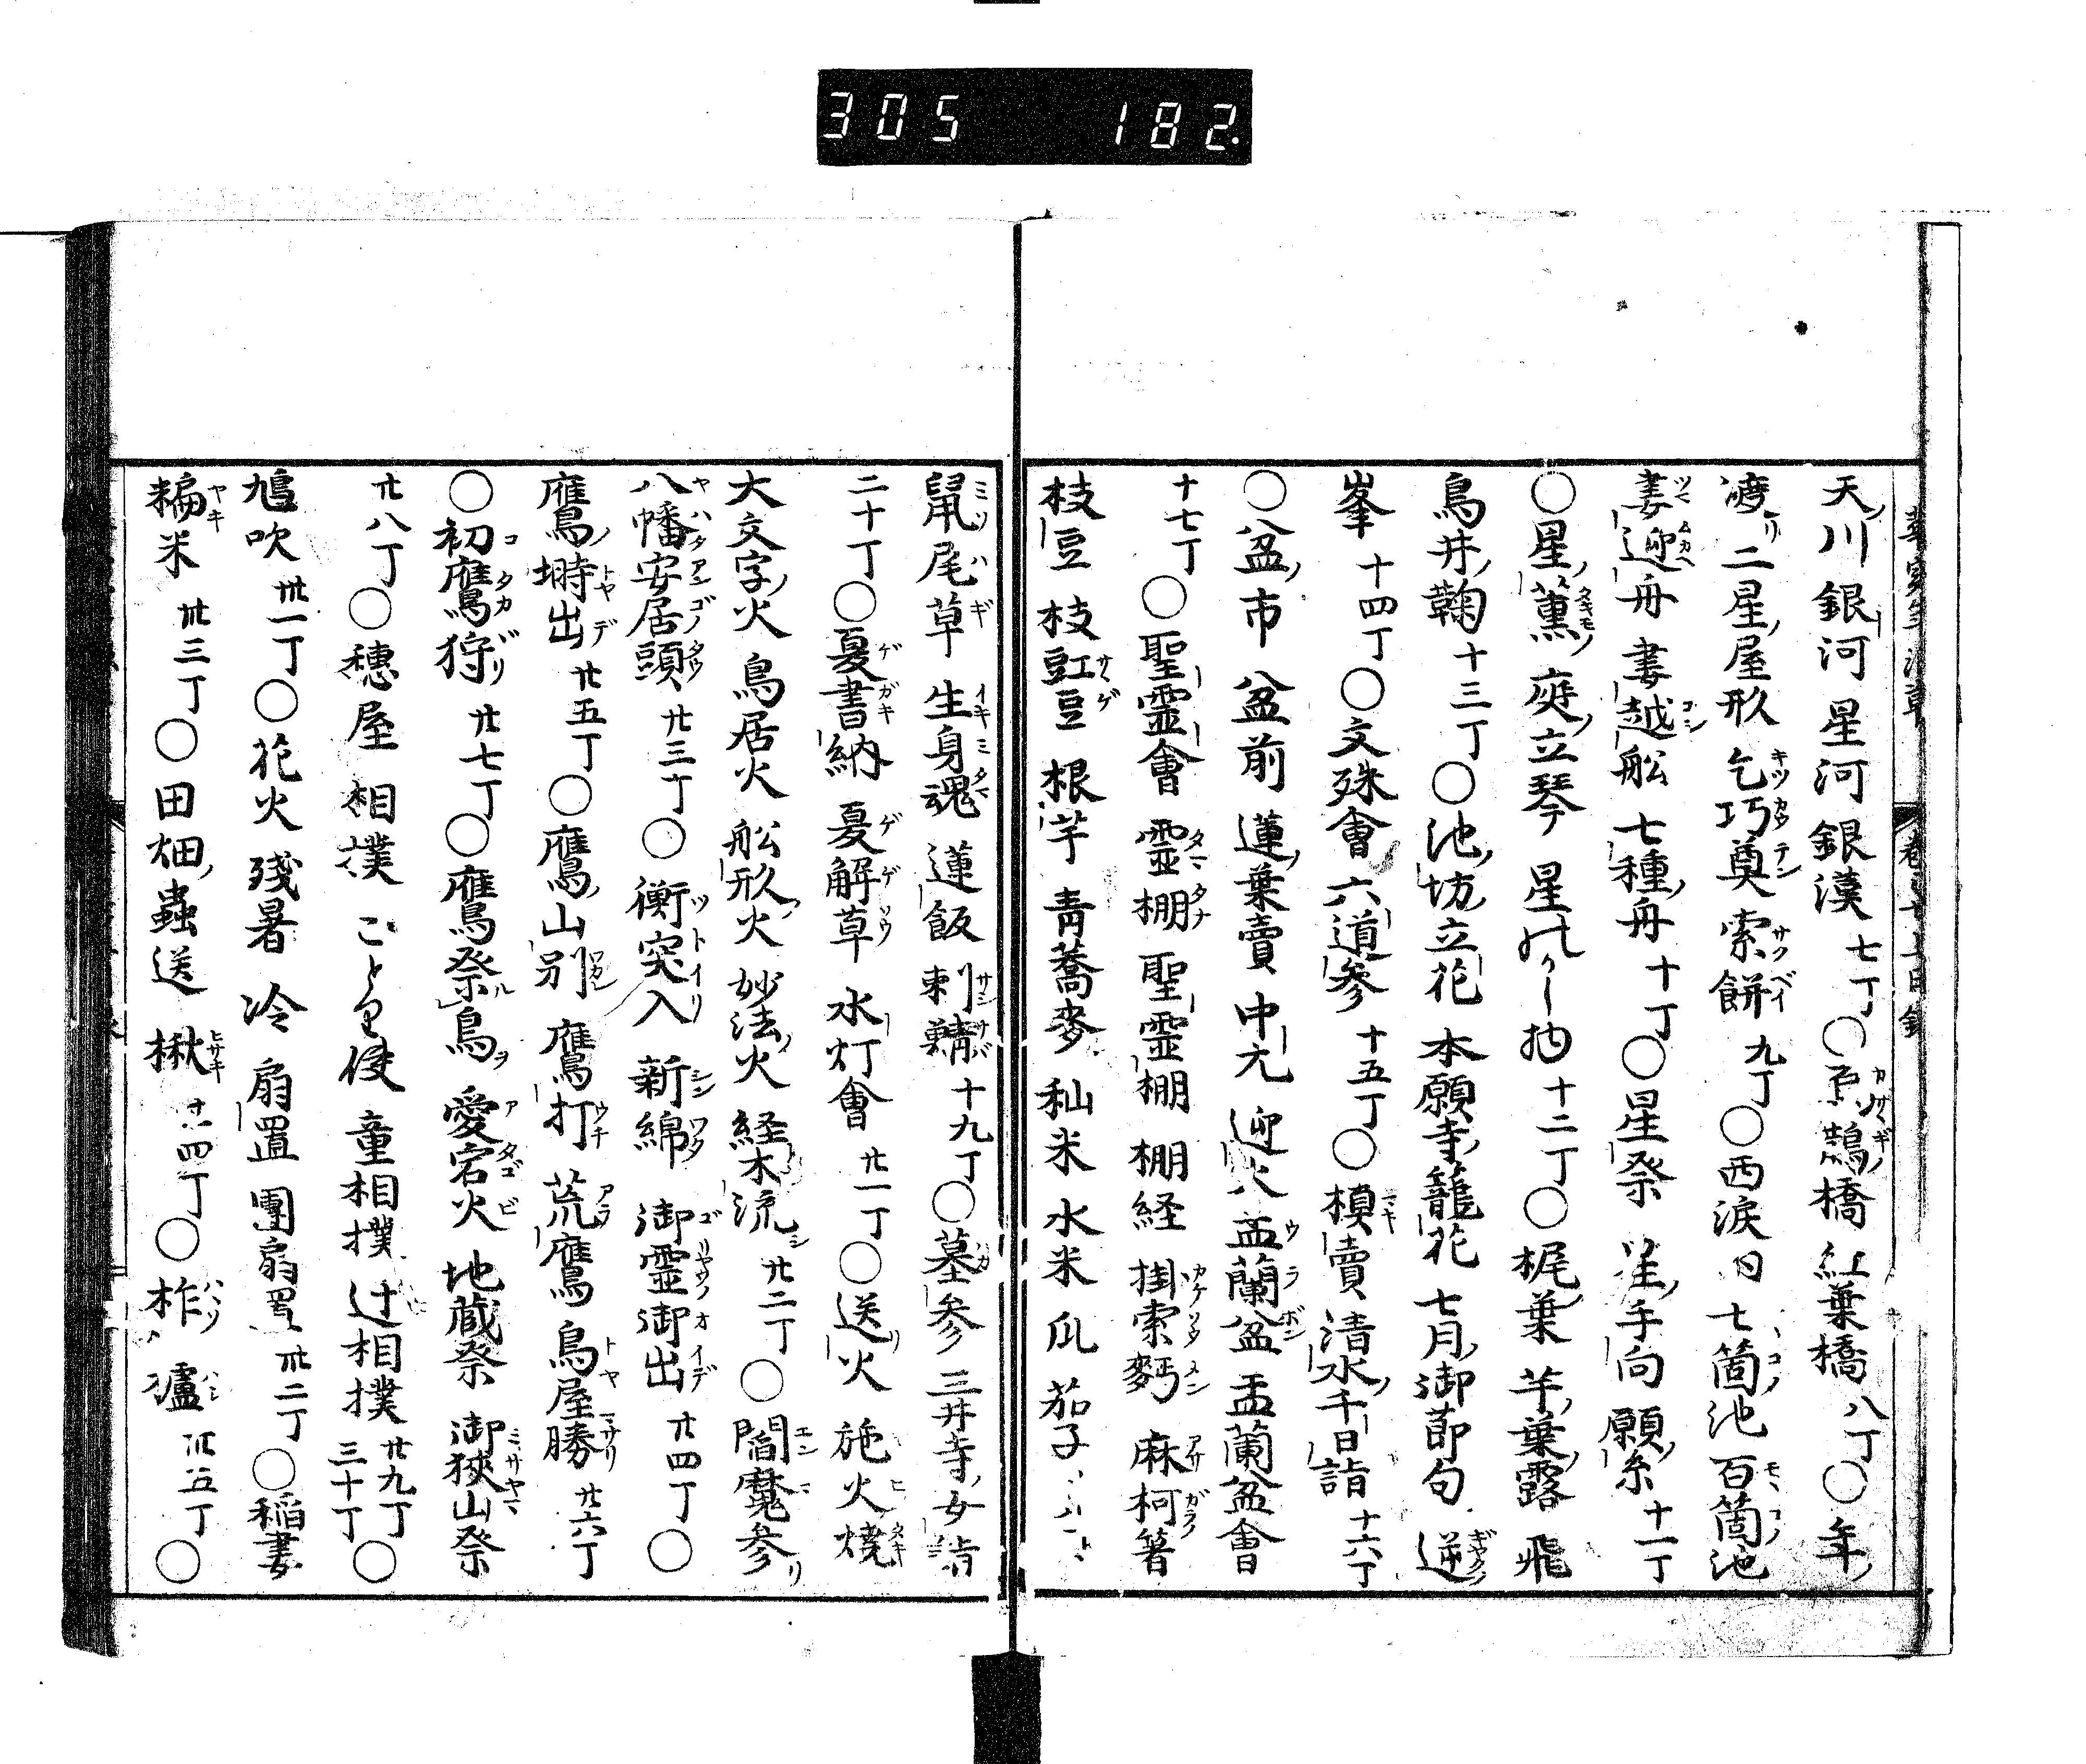 305 182.
天ノ川 銀河 星河 銀漢 七丁○烏鵲橋 紅葉橋 八丁○年ノ
渡リ 二星ノ屋形 乞巧奠 索餅 九丁○西涙日 七箇池 百箇池
妻迎舟 妻越舩 七種ノ舟 十丁○星祭 手向 願ノ糸 十一丁
○星ノ薫 庭ノ立琴 星 十二丁○梶葉 芋ノ葉ノ露 飛
鳥井ノ鞠 十三丁○池ノ坊ノ立花 本願寺ノ籠花 七月ノ御節句 逆
峯 十四丁○文殊會 六道參 十五丁○槙賣 清水ノ千日詣 十六丁
○盆ノ市 盆前 蓮ノ葉賣 中元 迎火 盂蘭盆 盂蘭盆會
十七丁○聖霊會 霊棚 聖霊棚 棚経 掛索麪 麻柯箸
枝豆 枝豇豆 根芋 青蕎麥 秈米 水米 瓜 茄子
鼠尾草 生身魂 蓮飯 刺鯖 十九丁○墓参 三井寺ノ女詣
二十丁○夏書納 夏解草 水灯會 廿一丁○送火 施火焼
大文字ノ火 鳥居火 舩形ノ火 妙法ノ火 経木流 廿二丁○閻魔参
八幡安居頭 廿三丁○衝突入 新綿 御霊御出 廿四丁○
鷹ノ塒出 廿五丁○鷹ノ山別 鷹打 荒鷹 鳥屋勝 廿六丁
○初鷹狩 廿七丁○鷹祭鳥 愛宕火 地蔵祭 御狹山祭
廿八丁○穂屋 相撲 ことり使 童相撲 辻相撲 廿九丁 三十丁○
鳩吹 丗一丁○花火 殘暑 冷 扇置 團扇置 丗二丁○稲妻
糄米 丗三丁○田畑ノ蟲送 楸 四丁○柞 瀘 五丁○